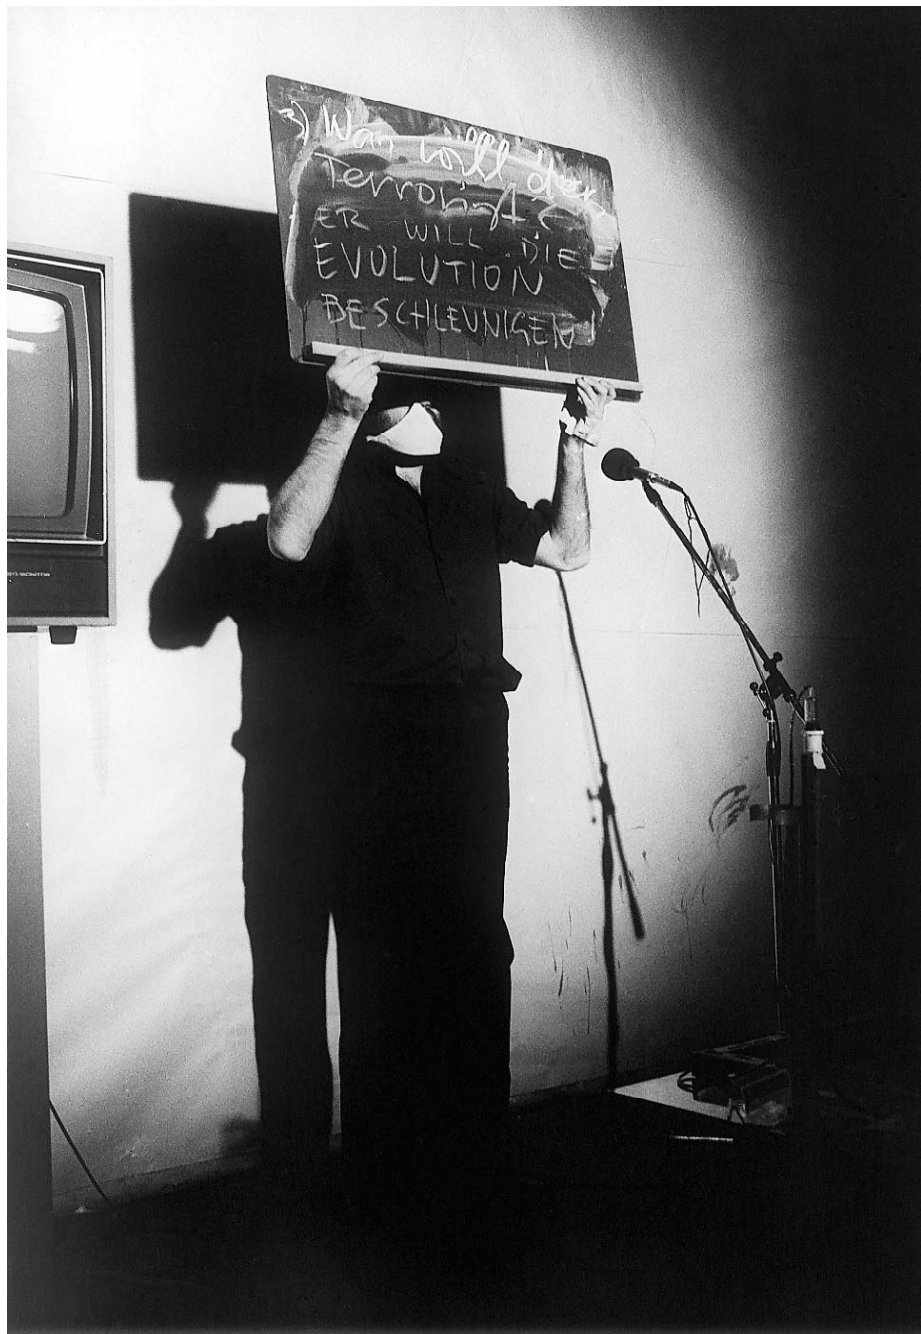 3) Was will der
Terrorist?
ER WILL DIE
EVOLUTION
BESCHLEUNIGEN!
MONITOR